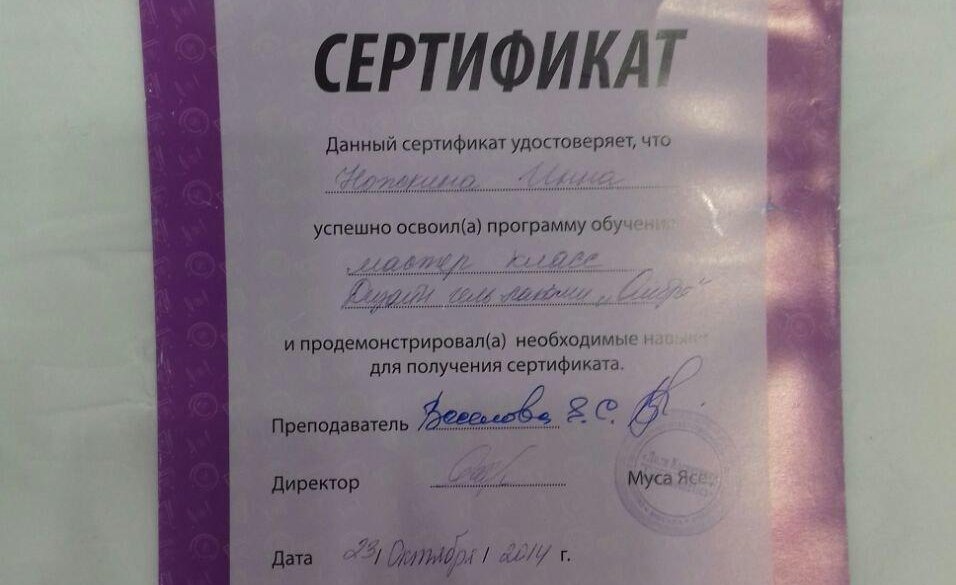 СЕРТИФИКАТ
Данный сертификат удостоверяет, что
Ножкина Инна
успешно освоил(а) программу обучения
мастер класс
Дизайн гель лаками „Омбре“
и продемонстрировал(а) необходимые навыки
для получения сертификата.
Преподаватель Веселова Е.С.
Директор Муса Ясе
Дата 23/Октября/ 2014 г.